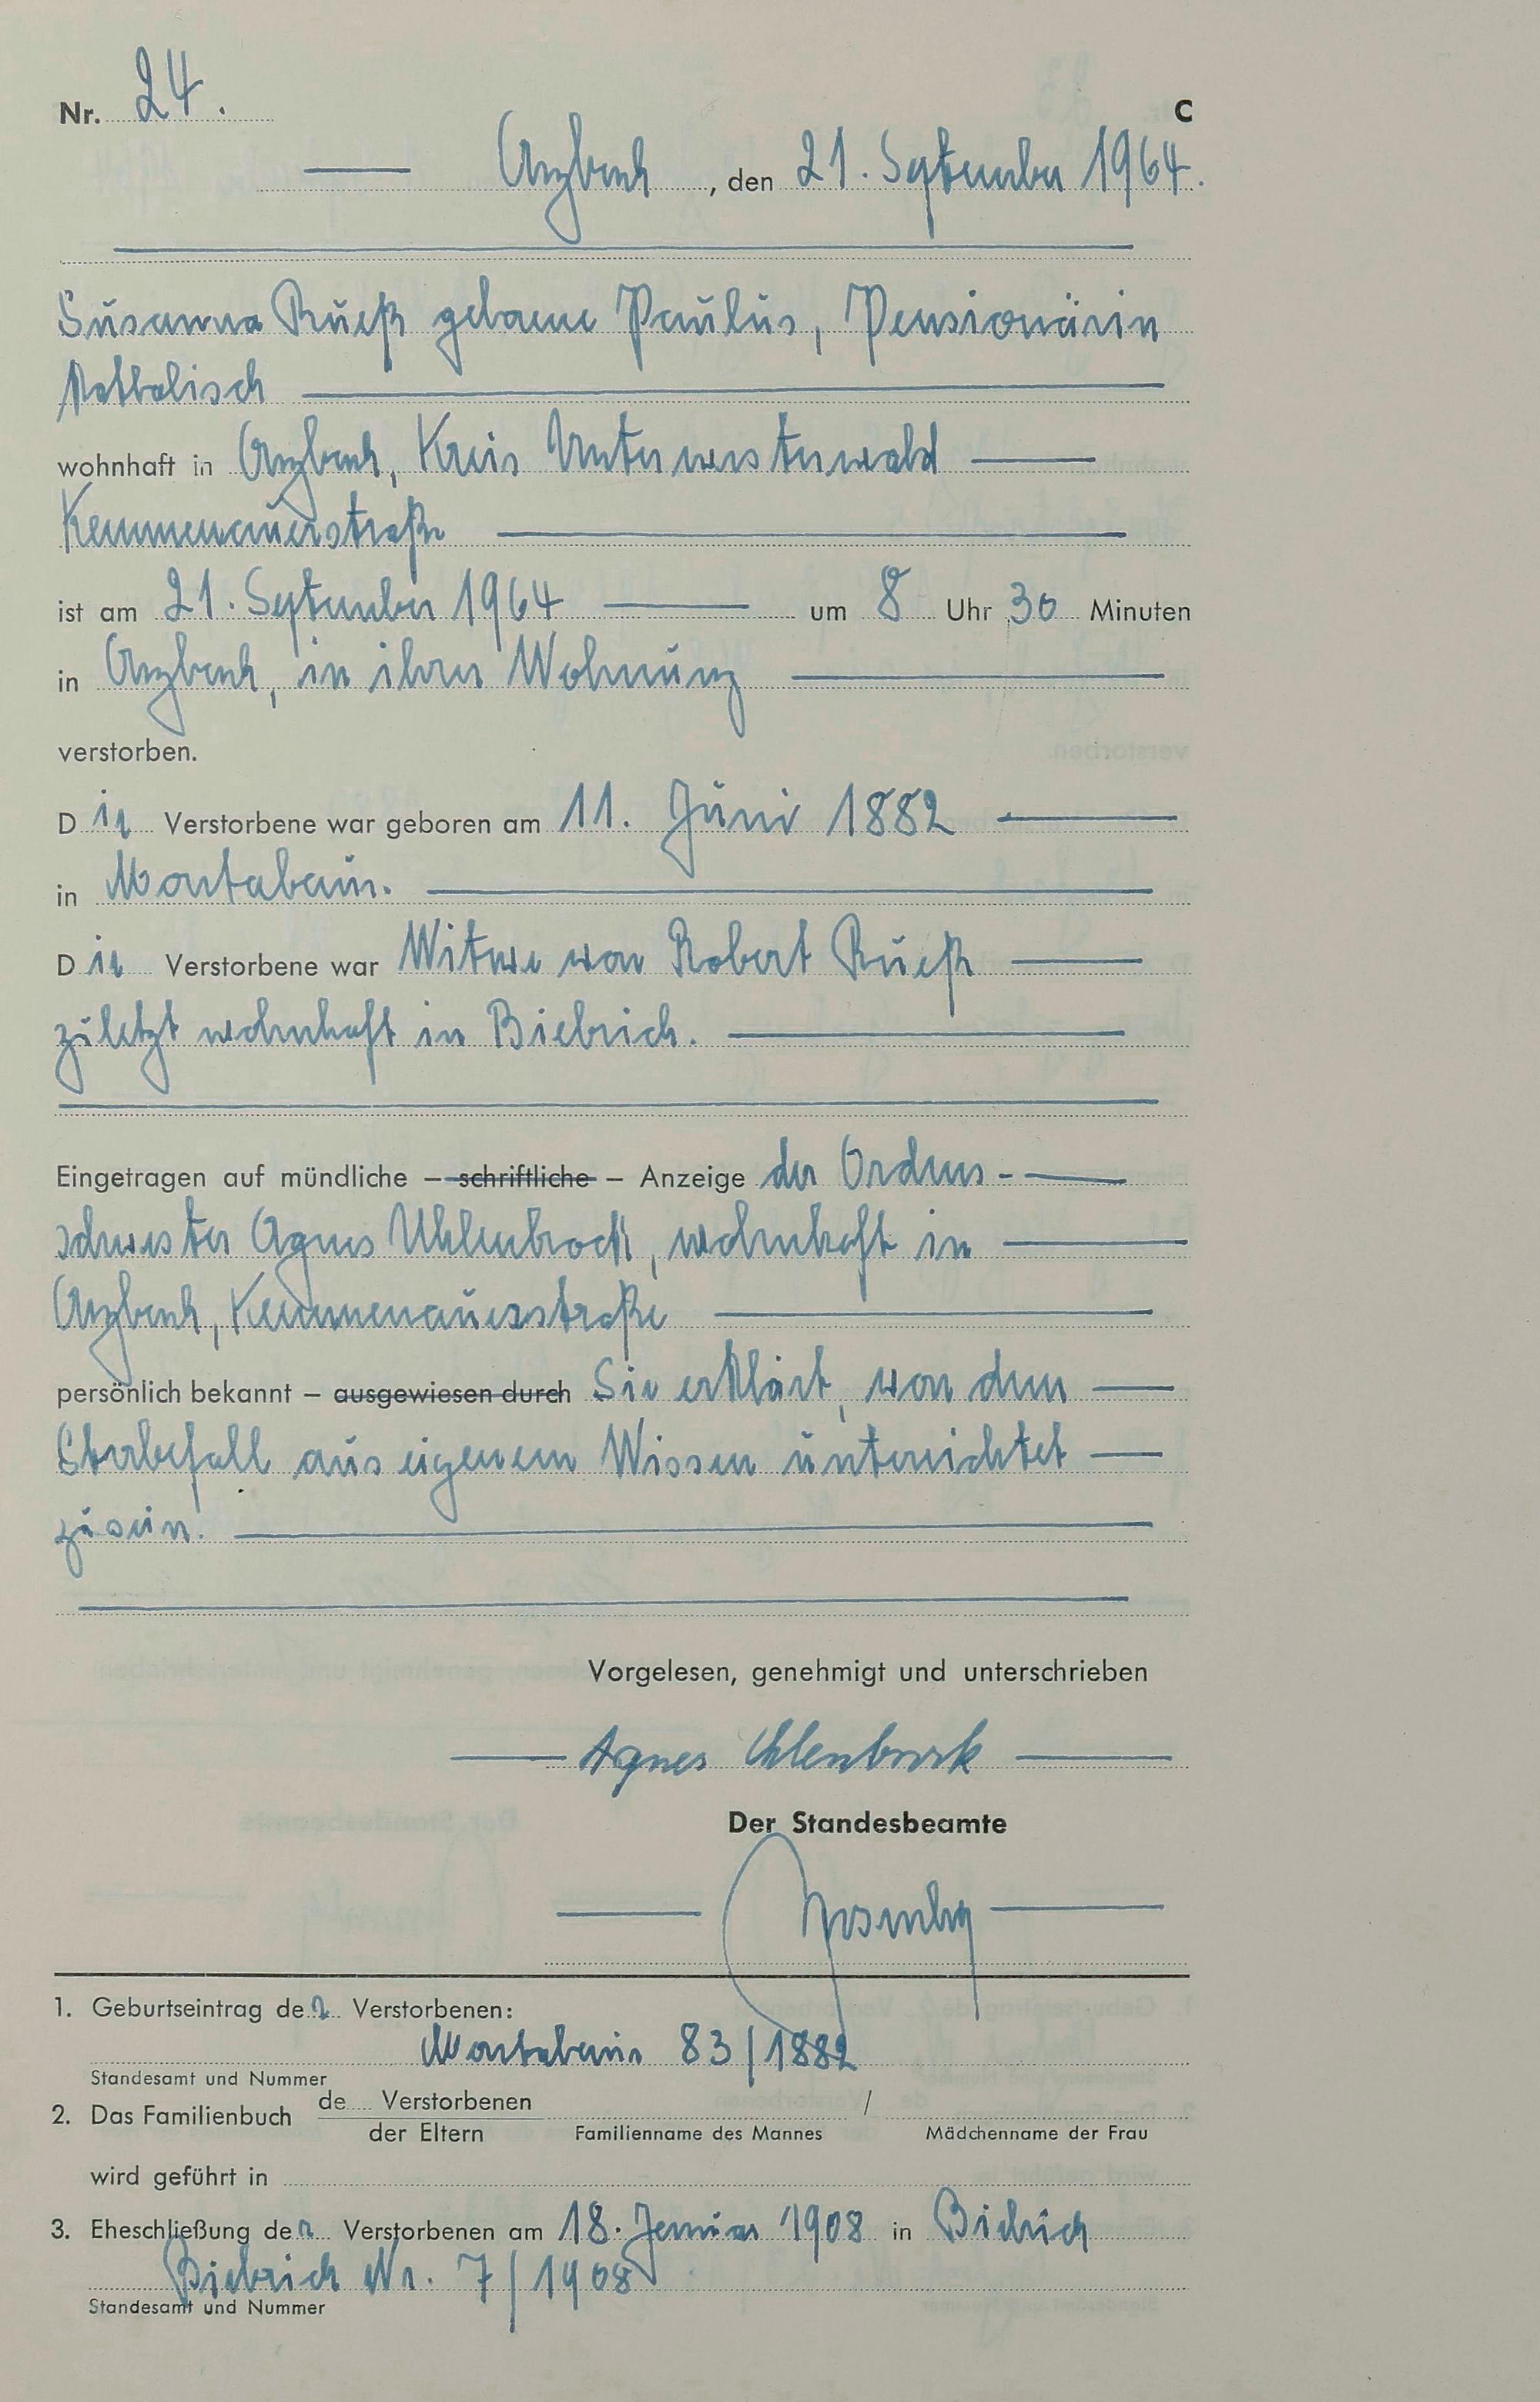 Nr. 24. C
Arzbach, den 21. September 1964.
Susanna Rueß geborene Paulus, Pensionärin
Katholisch
wohnhaft in Arzbach, Kreis Unterwesterwald
Kemmenauerstraße
ist am 21. September 1964 um 8 Uhr 30 Minuten
in Arzbach, in ihrer Wohnung
verstorben.
Die Verstorbene war geboren am 11. Juni 1882
in Montabaur.
Die Verstorbene war Witwe von Robert Rueß
zuletzt wohnhaft in Biebrich.
Eingetragen auf mündliche – schriftliche – Anzeige der Ordens-
schwester Agnes Uhlenbrock, wohnhaft in
Arzbach, Kemmenauerstraße
persönlich bekannt – ausgewiesen durch Sie erklärt, von dem
Sterbefall aus eigenem Wissen unterrichtet
zu sein.
Vorgelesen, genehmigt und unterschrieben
Agnes Uhlenbrock
Der Standesbeamte
1. Geburtseintrag der Verstorbenen:
Montabaur 83/1882
Standesamt und Nummer
2. Das Familienbuch de Verstorbenen /
der Eltern Familienname des Mannes Mädchenname der Frau
wird geführt in
3. Eheschließung der Verstorbenen am 18. Januar 1908 in Biebrich
Biebrich Nr. 7/1908
Standesamt und Nummer